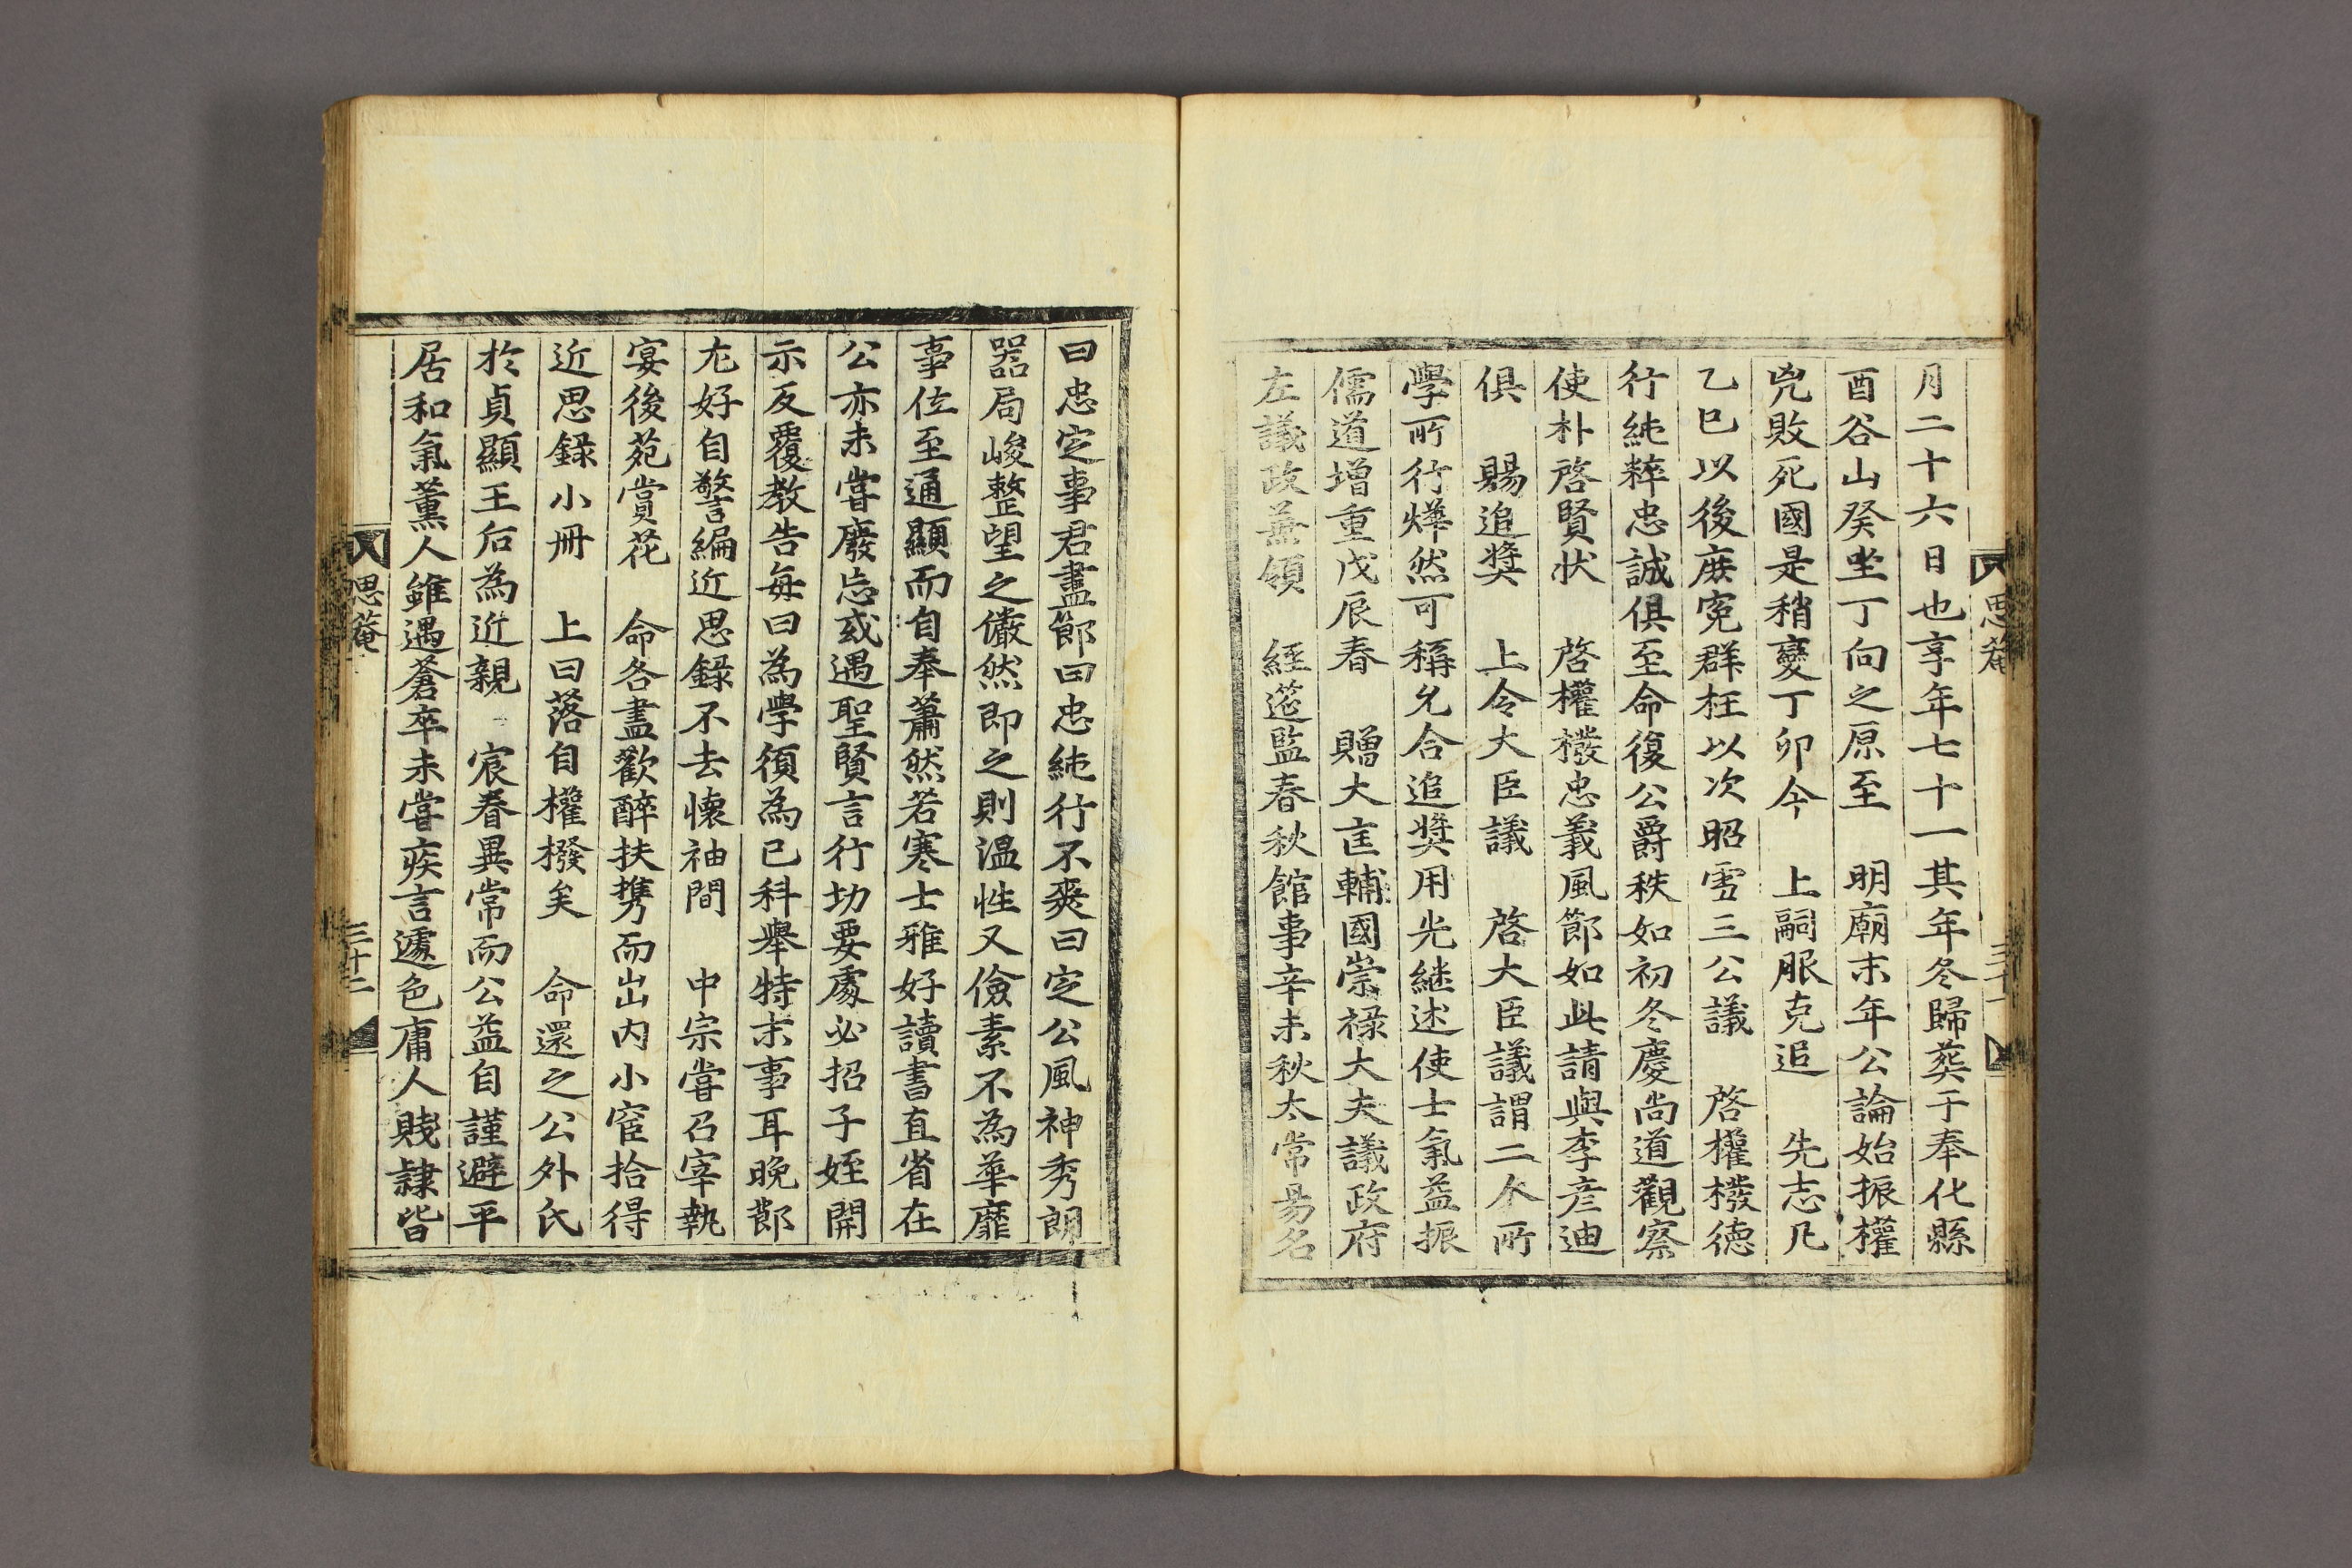 月二十六日也享年七十一其年冬歸葬于奉化縣
酉谷山癸坐丁向之原至 明廟末年公論始振權
兇敗死國是稍變丁卯今 上嗣服克追 先志凡
乙巳以後庶寃群枉以次昭雪三公議 啓權橃德
行純粹忠誠俱至命復公爵秩如初冬慶尚道觀察
使朴啓賢狀 啓權橃忠義風節如此請與李彦迪
俱 賜追奬 上令大臣議 啓大臣議謂二人所
學所行燁然可稱允合追奬用光継述使士氣益振
儒道增重戊辰春 贈大匡輔國崇祿大夫議政府
左議政兼領 経筵監春秋館事辛未秋太常易名
思菴 三十一
曰忠定事君盡節曰忠純行不爽曰定公風神秀朗
器局峻整望之儼然即之則温性又儉素不為華靡
事位至通顯而自奉蕭然若寒士雅好讀書直省在
公亦未甞廢忘或遇聖賢言行切要處必招子姪開
示反覆教告每曰為學須為己科舉特末事耳晩節
尤好自警編近思錄不去懷袖間 中宗甞召宰執
宴後苑賞花 命各盡歡醉扶携而出内小宦拾得
近思錄小冊 上曰落自權橃矣 命還之公外氏
於貞顯王后為近親 宸眷異常而公益自謹避平
居和氣薫人雖遇蒼卒未甞疾言遽色庸人賤隷皆
思菴 三十二